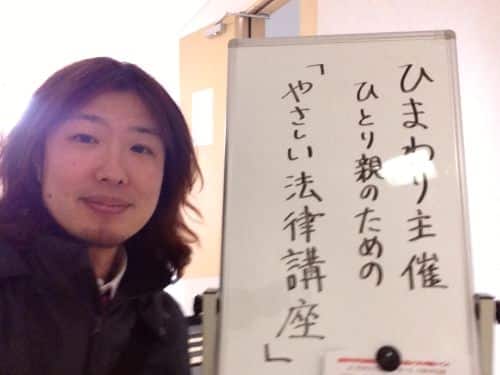 ひまわり主催
ひとり親のための
「やさしい法律講座」